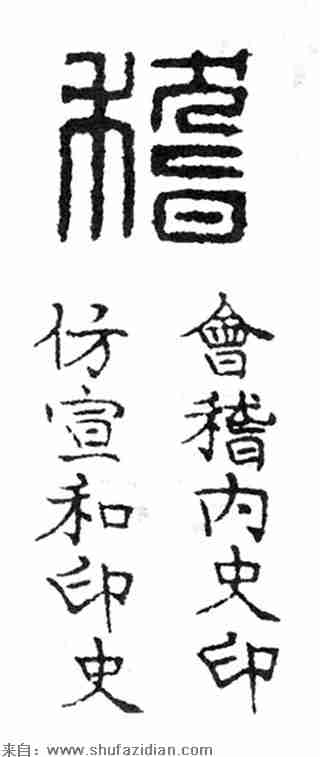 稽
會稽内史印
仿宣和印史
来自：www.shufazidian.com